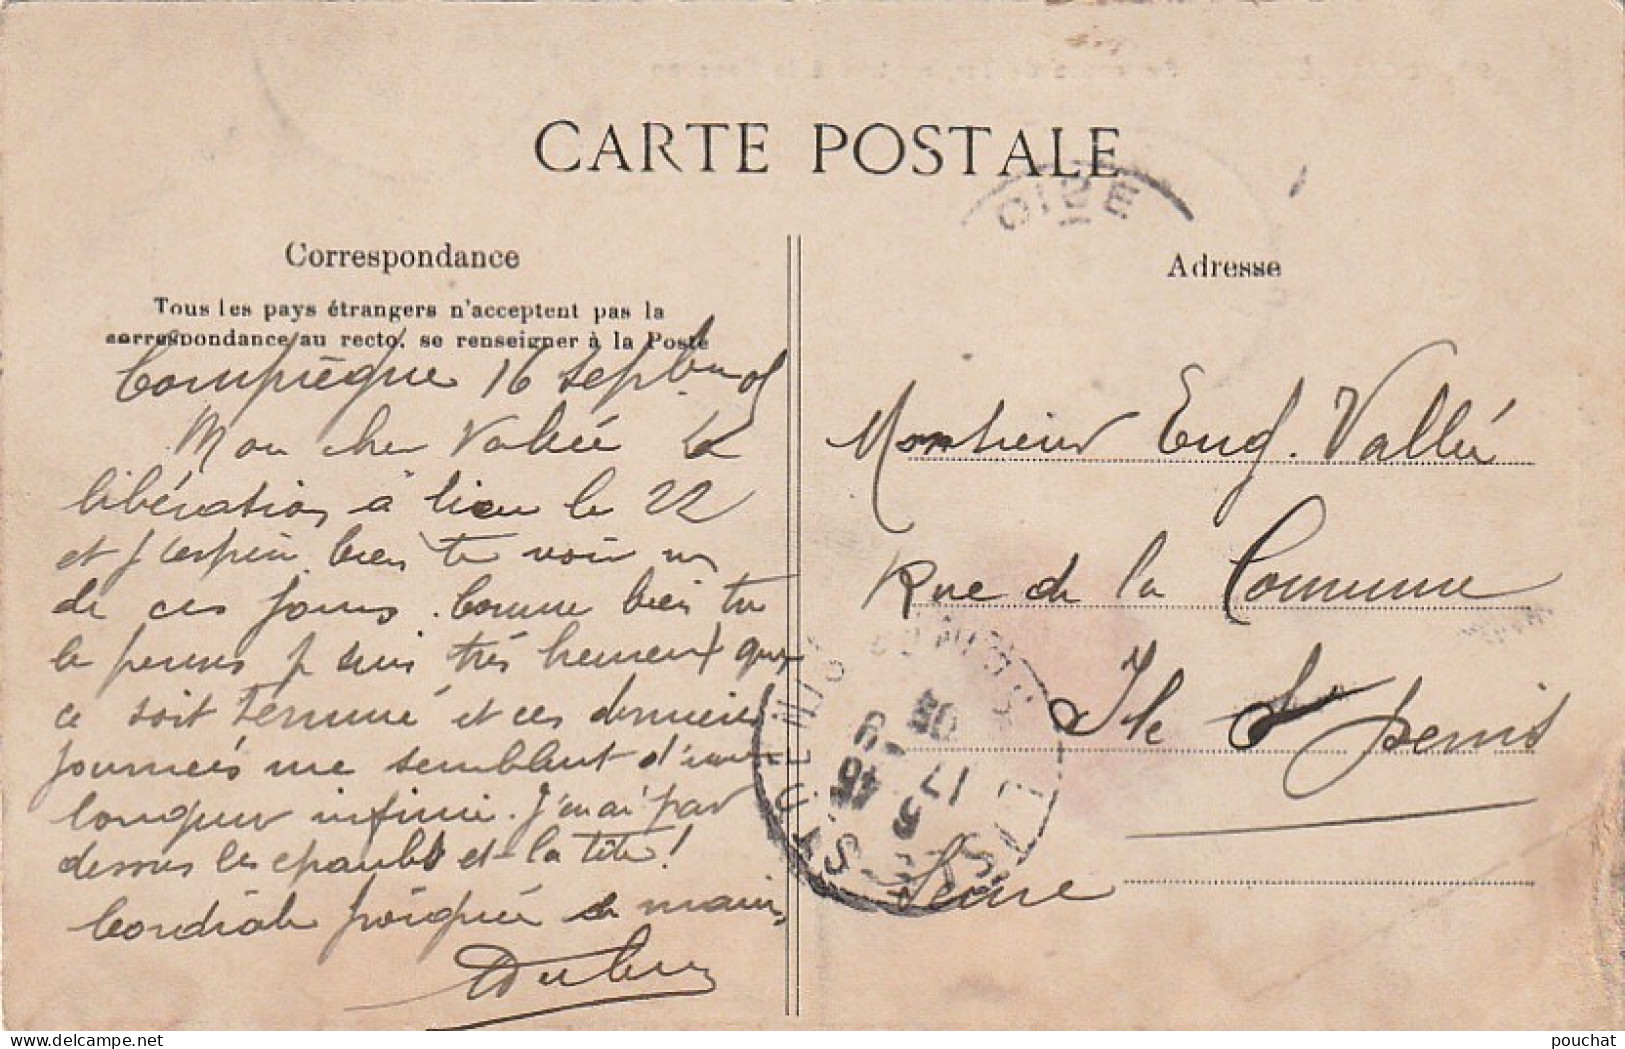 CARTE POSTALE
OISE
Correspondance
Tous les pays étrangers n'acceptent pas la
correspondance au recto, se renseigner à la Poste
Compiègne 16 Septbre 05
Mon cher Vallée La
libération à lieu le 22
et j'espère bien te voir un
de ces jours. Comme bien tu
le penses je suis très heureux que
ce soit terminé et ces dernières
journées me semblent d'une
longueur infinie. J'en ai par
dessus les épaules et la tête!
Cordiale poignée de main,
Adresse
Monsieur Eug. Vallée
Rue de la Commune
Ile St Denis
Seine
delcampe.net
pouchat